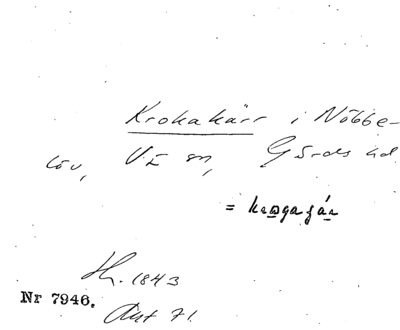 Krokakärr i Nöbbe-
löv, V. sn, Gärds hd
= kroga
H. 1843
Nr 7946.
Avt 71.